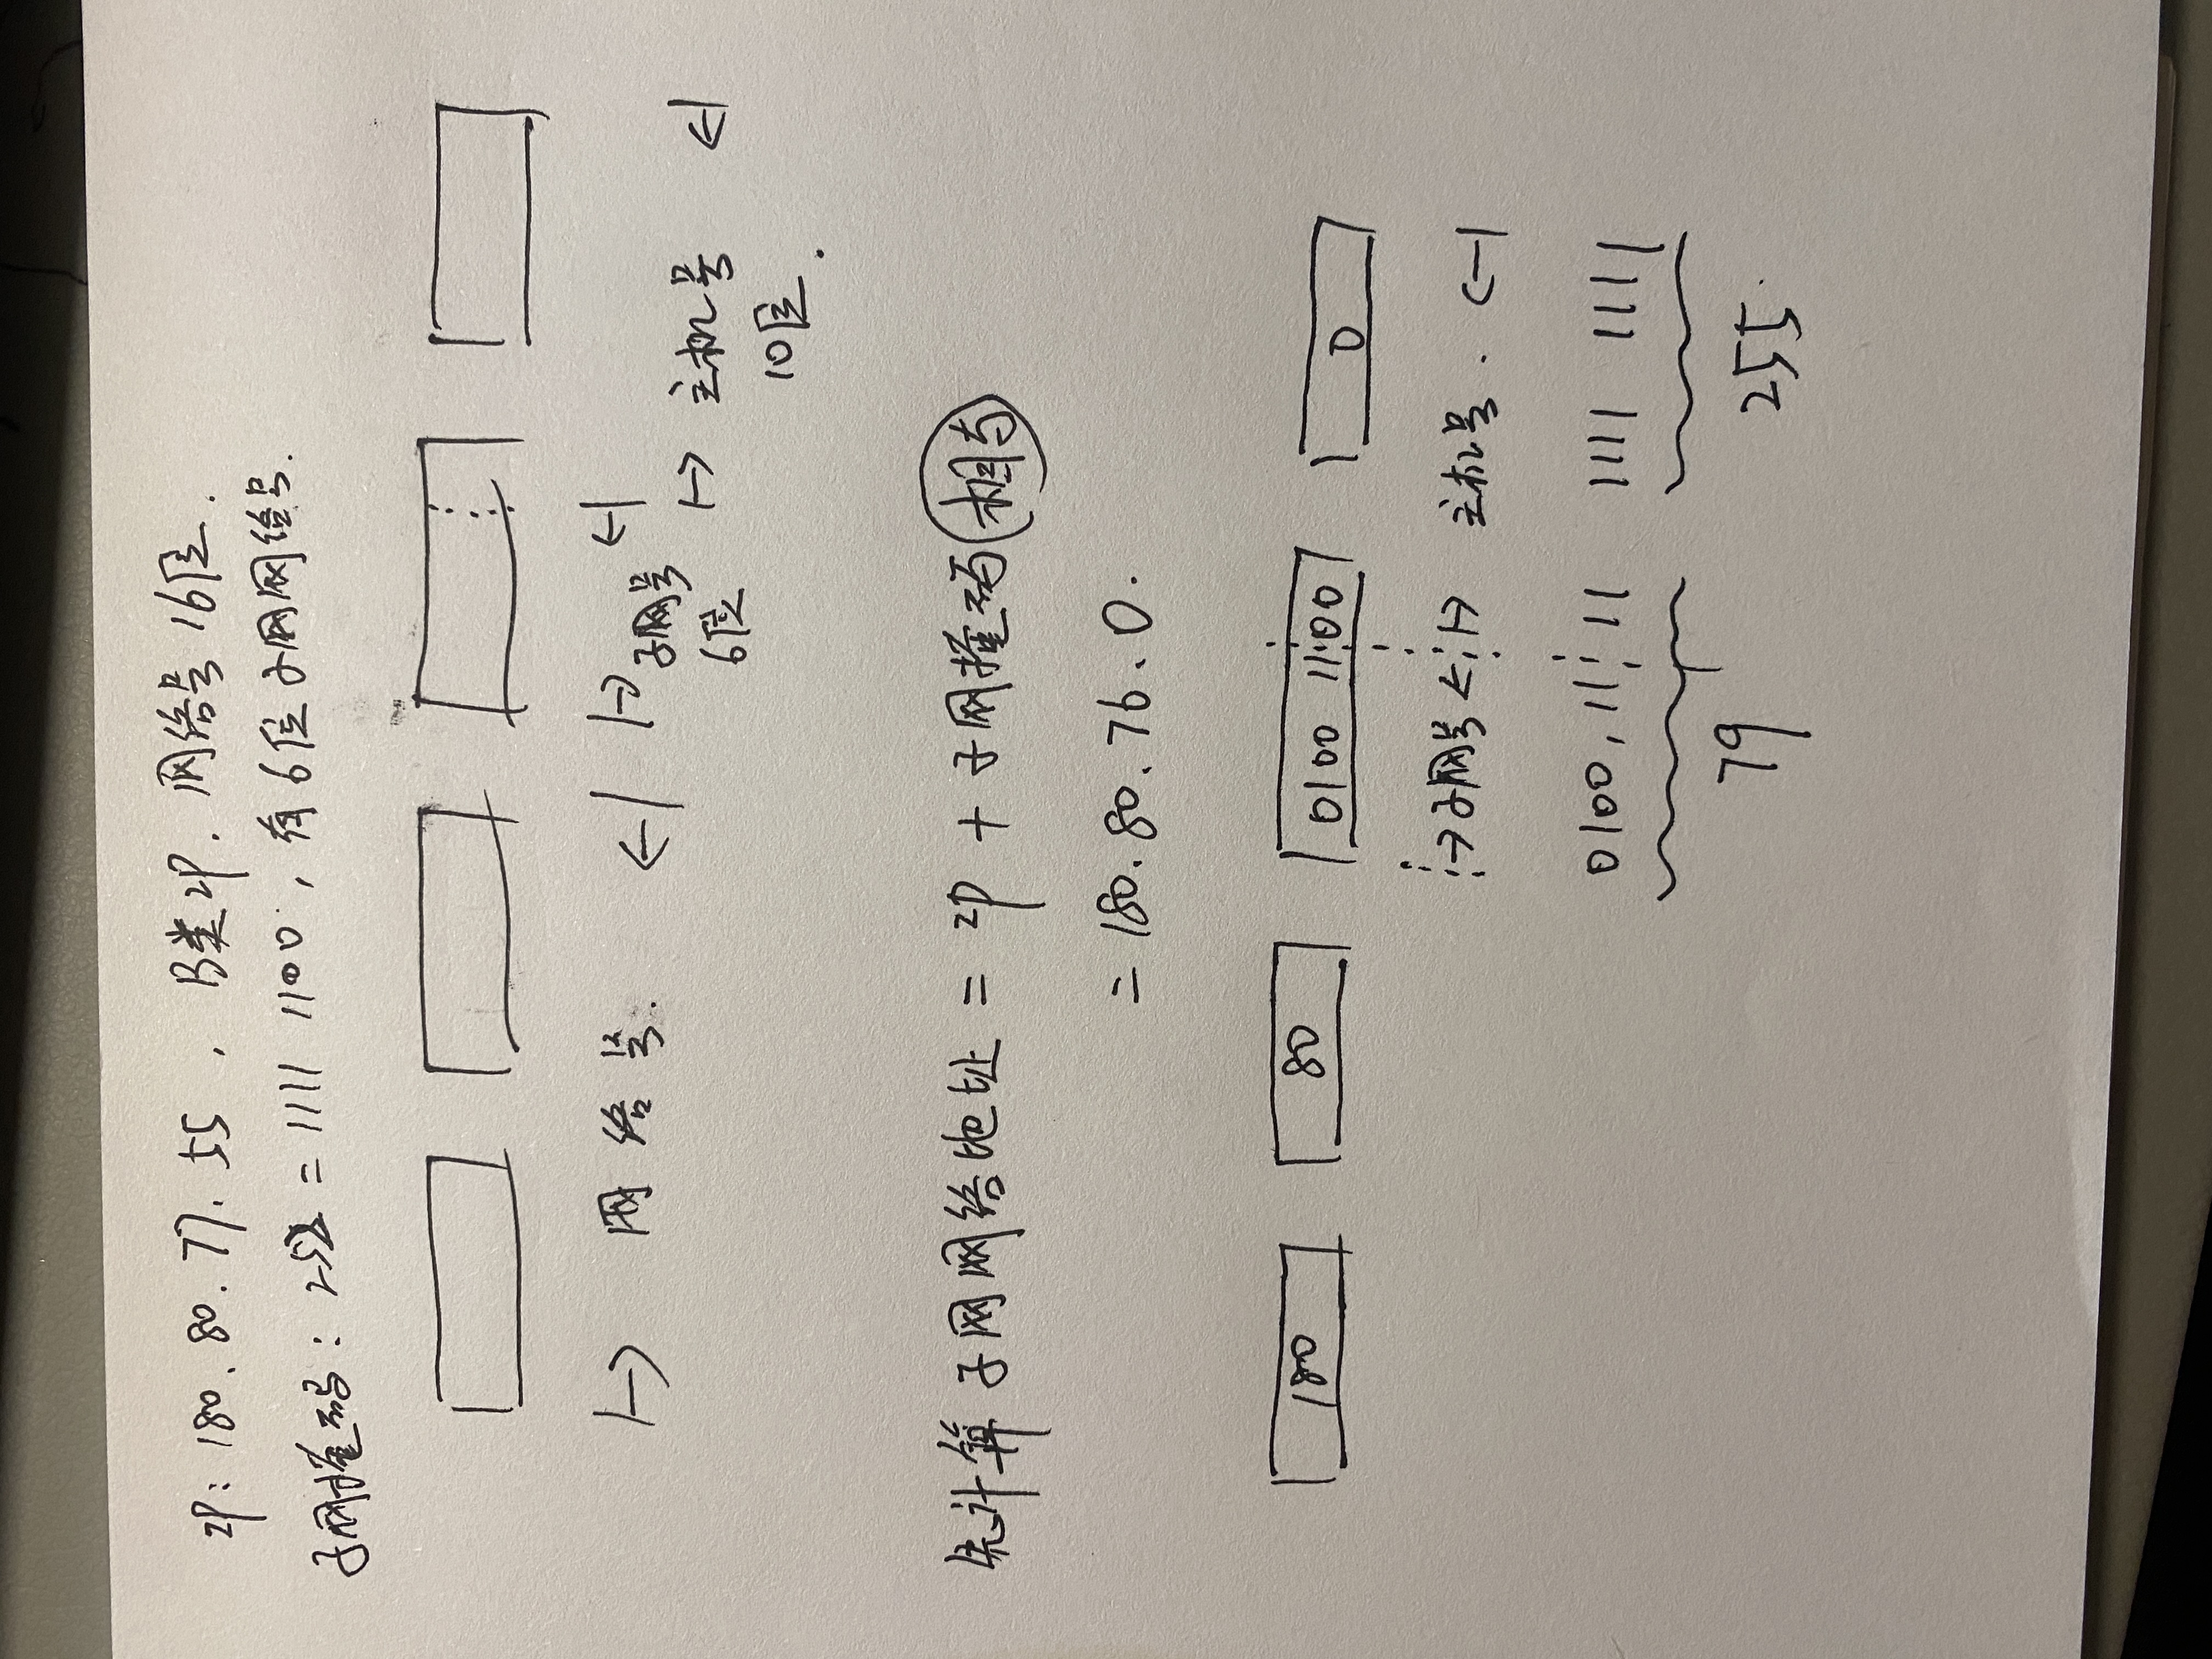 IP: 180.80.77.55, B类IP. 网络号16位.
子网掩码: 252 = 1111 1100, 有6位子网网络号.
网络号. 子网号
6位 主机号
10位.
先计算子网网络地址 = IP + 子网掩码 相与
= 180.80.76.0.
180 80 0100 1100 0
子网号 主机号.
0100, 11 11 1111 1111
79 255.